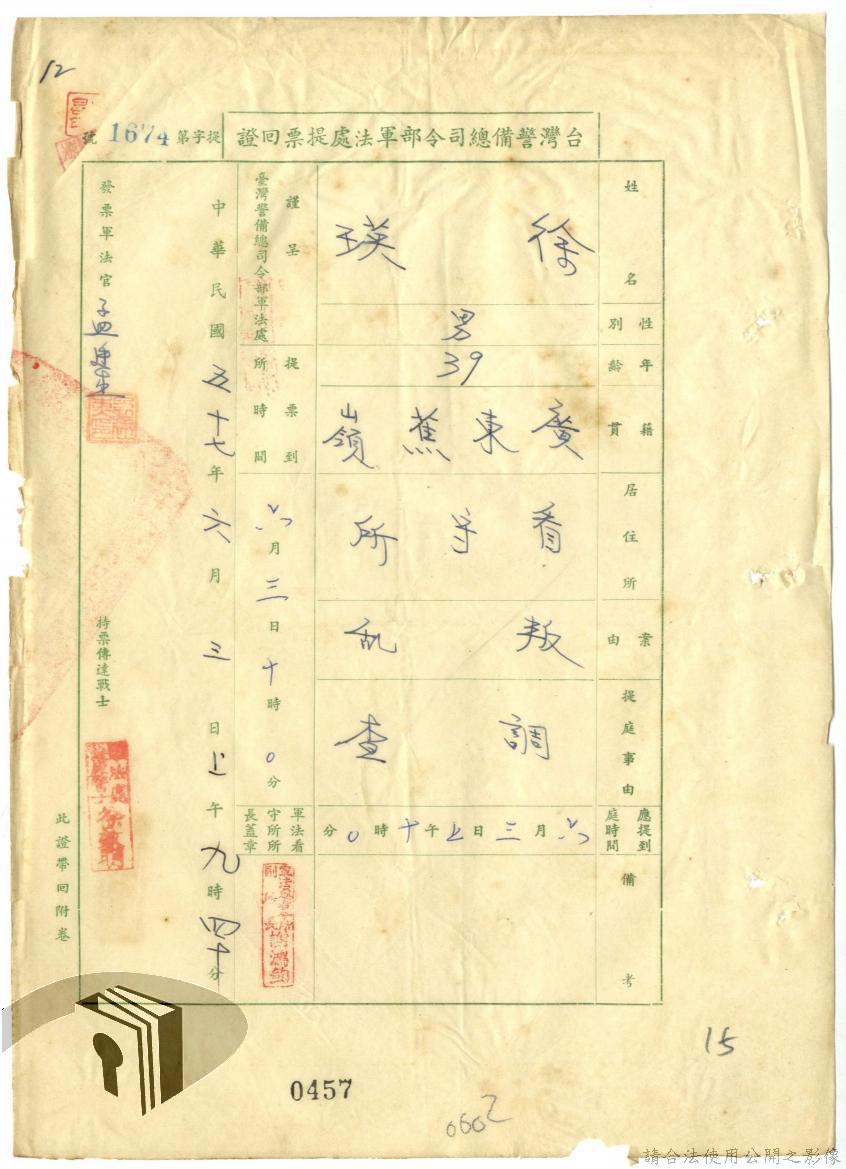 12
台灣警備總司令部軍法處提票回證
提字第1674號
姓名 徐瑛
性別 男
年齡 39
籍貫 廣東蕉嶺
居住所 看守所
案由 叛乱
提庭事由 調查
應提到庭時間 六月三日上午十時0分
備考
謹呈
臺灣警備總司令部軍法處
提票到所時間 六月三日十時0分
軍法看守所所長蓋章
中華民國五十七年六月三日上午九時四十分
發票軍法官
持票傳達戰士
此證帶回附卷
15
0457
0602
請合法使用公開之影像